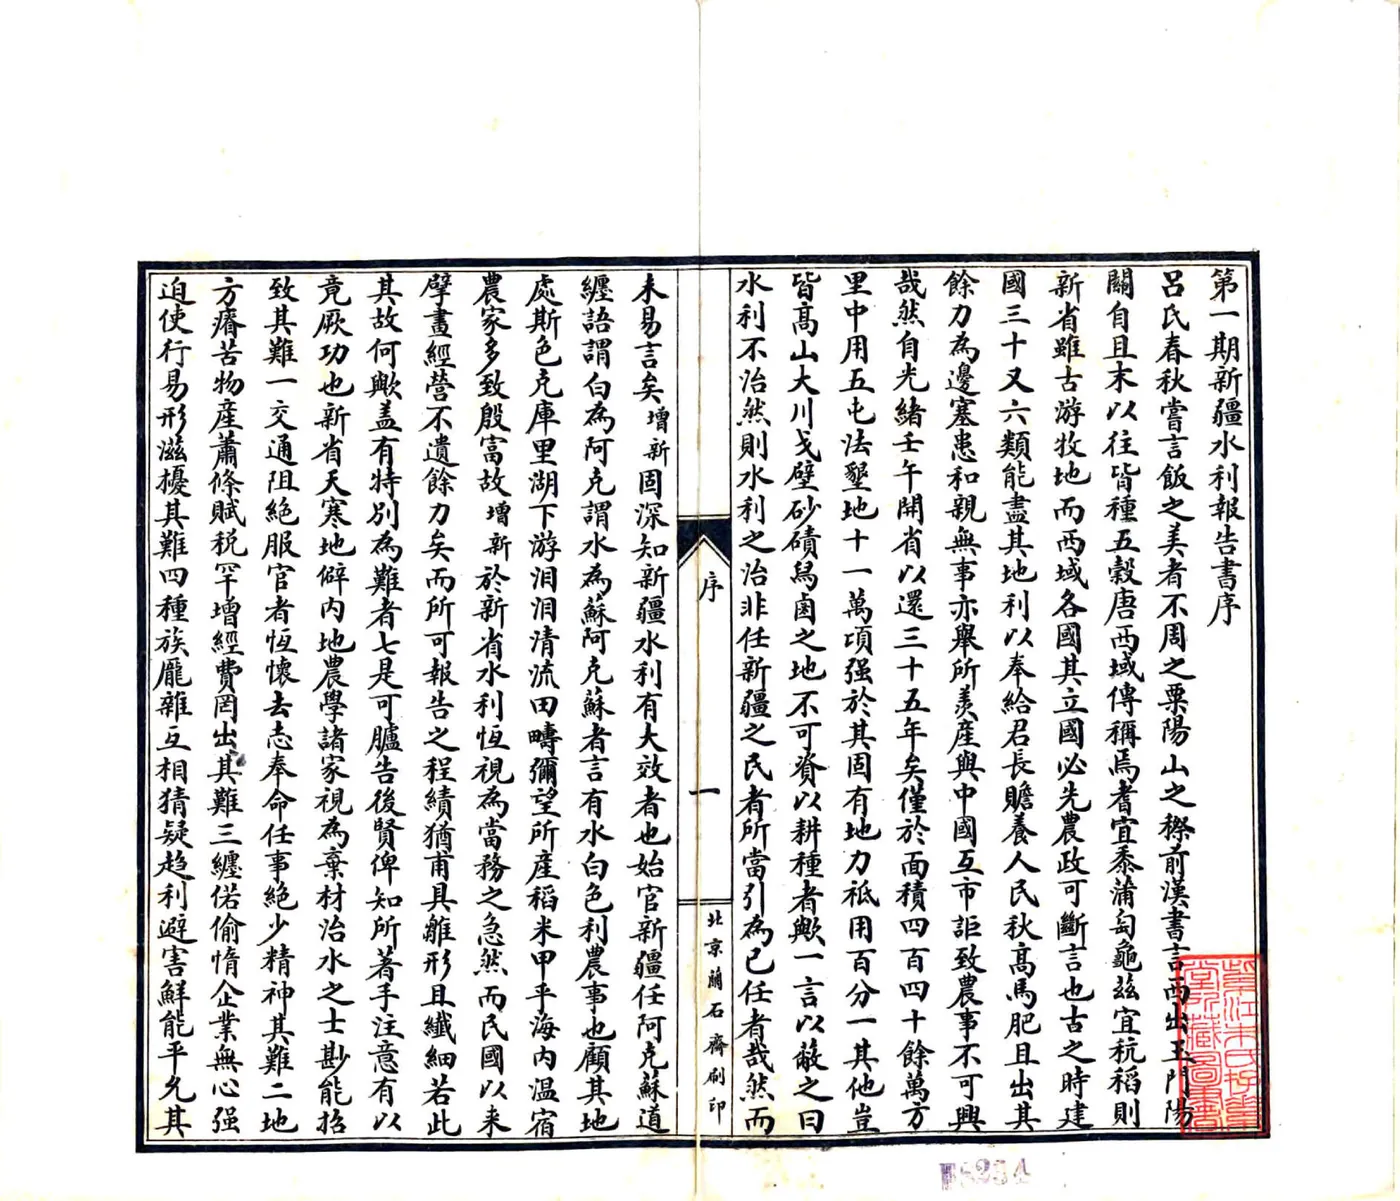 第一期新疆水利報告書序
呂氏春秋嘗言飯之美者不周之粟陽山之穄前漢書言西出玉門陽
關自且末以往皆種五穀唐西域傳稱焉耆宜黍蒲萄龜茲宜秔稻則
新省雖古游牧地而西域各國其立國必先農政可斷言也古之時建
國三十又六類能盡其地利以奉給君長贍養人民秋高馬肥且出其
餘力為邊塞患和親無事亦舉所羨產與中國互市詎致農事不可興
哉然自光緒壬午開省以還三十五年矣僅於面積四百四十餘萬方
里中用五屯法墾地十一萬頃强於其固有地力祗用百分一其他豈
皆高山大川戈壁砂磧舄鹵之地不可資以耕種者歟一言以蔽之曰
水利不治然則水利之治非任新疆之民者所當引為己任者哉然而
序
一
北京蘭石齋刷印
未易言矣增新固深知新疆水利有大效者也始官新疆任阿克蘇道
纏語謂白為阿克謂水為蘇阿克蘇者言有水白色利農事也顧其地
處斯色克庫里湖下游泪泪清流田疇彌望所産稻米甲乎海內温宿
農家多致殷富故增新於新省水利恆視為當務之急然而民國以来
擘畫經營不遺餘力矣而所可報告之程績猶甫具雛形且纖細若此
其故何歟盖有特別為難者七是可臚告後賢俾知所著手注意有以
竟厥功也新省天寒地僻内地農學諸家視為棄材治水之士尠能招
致其難一交通阻絶服官者恆懷去志奉命任事絶少精神其難二地
方瘠苦物産蕭條賦税罕增經費罔出其難三纏偌偷惰企業無心强
迫使行易形滋擾其難四種族龐雜互相猜疑趋利避害鮮能平允其